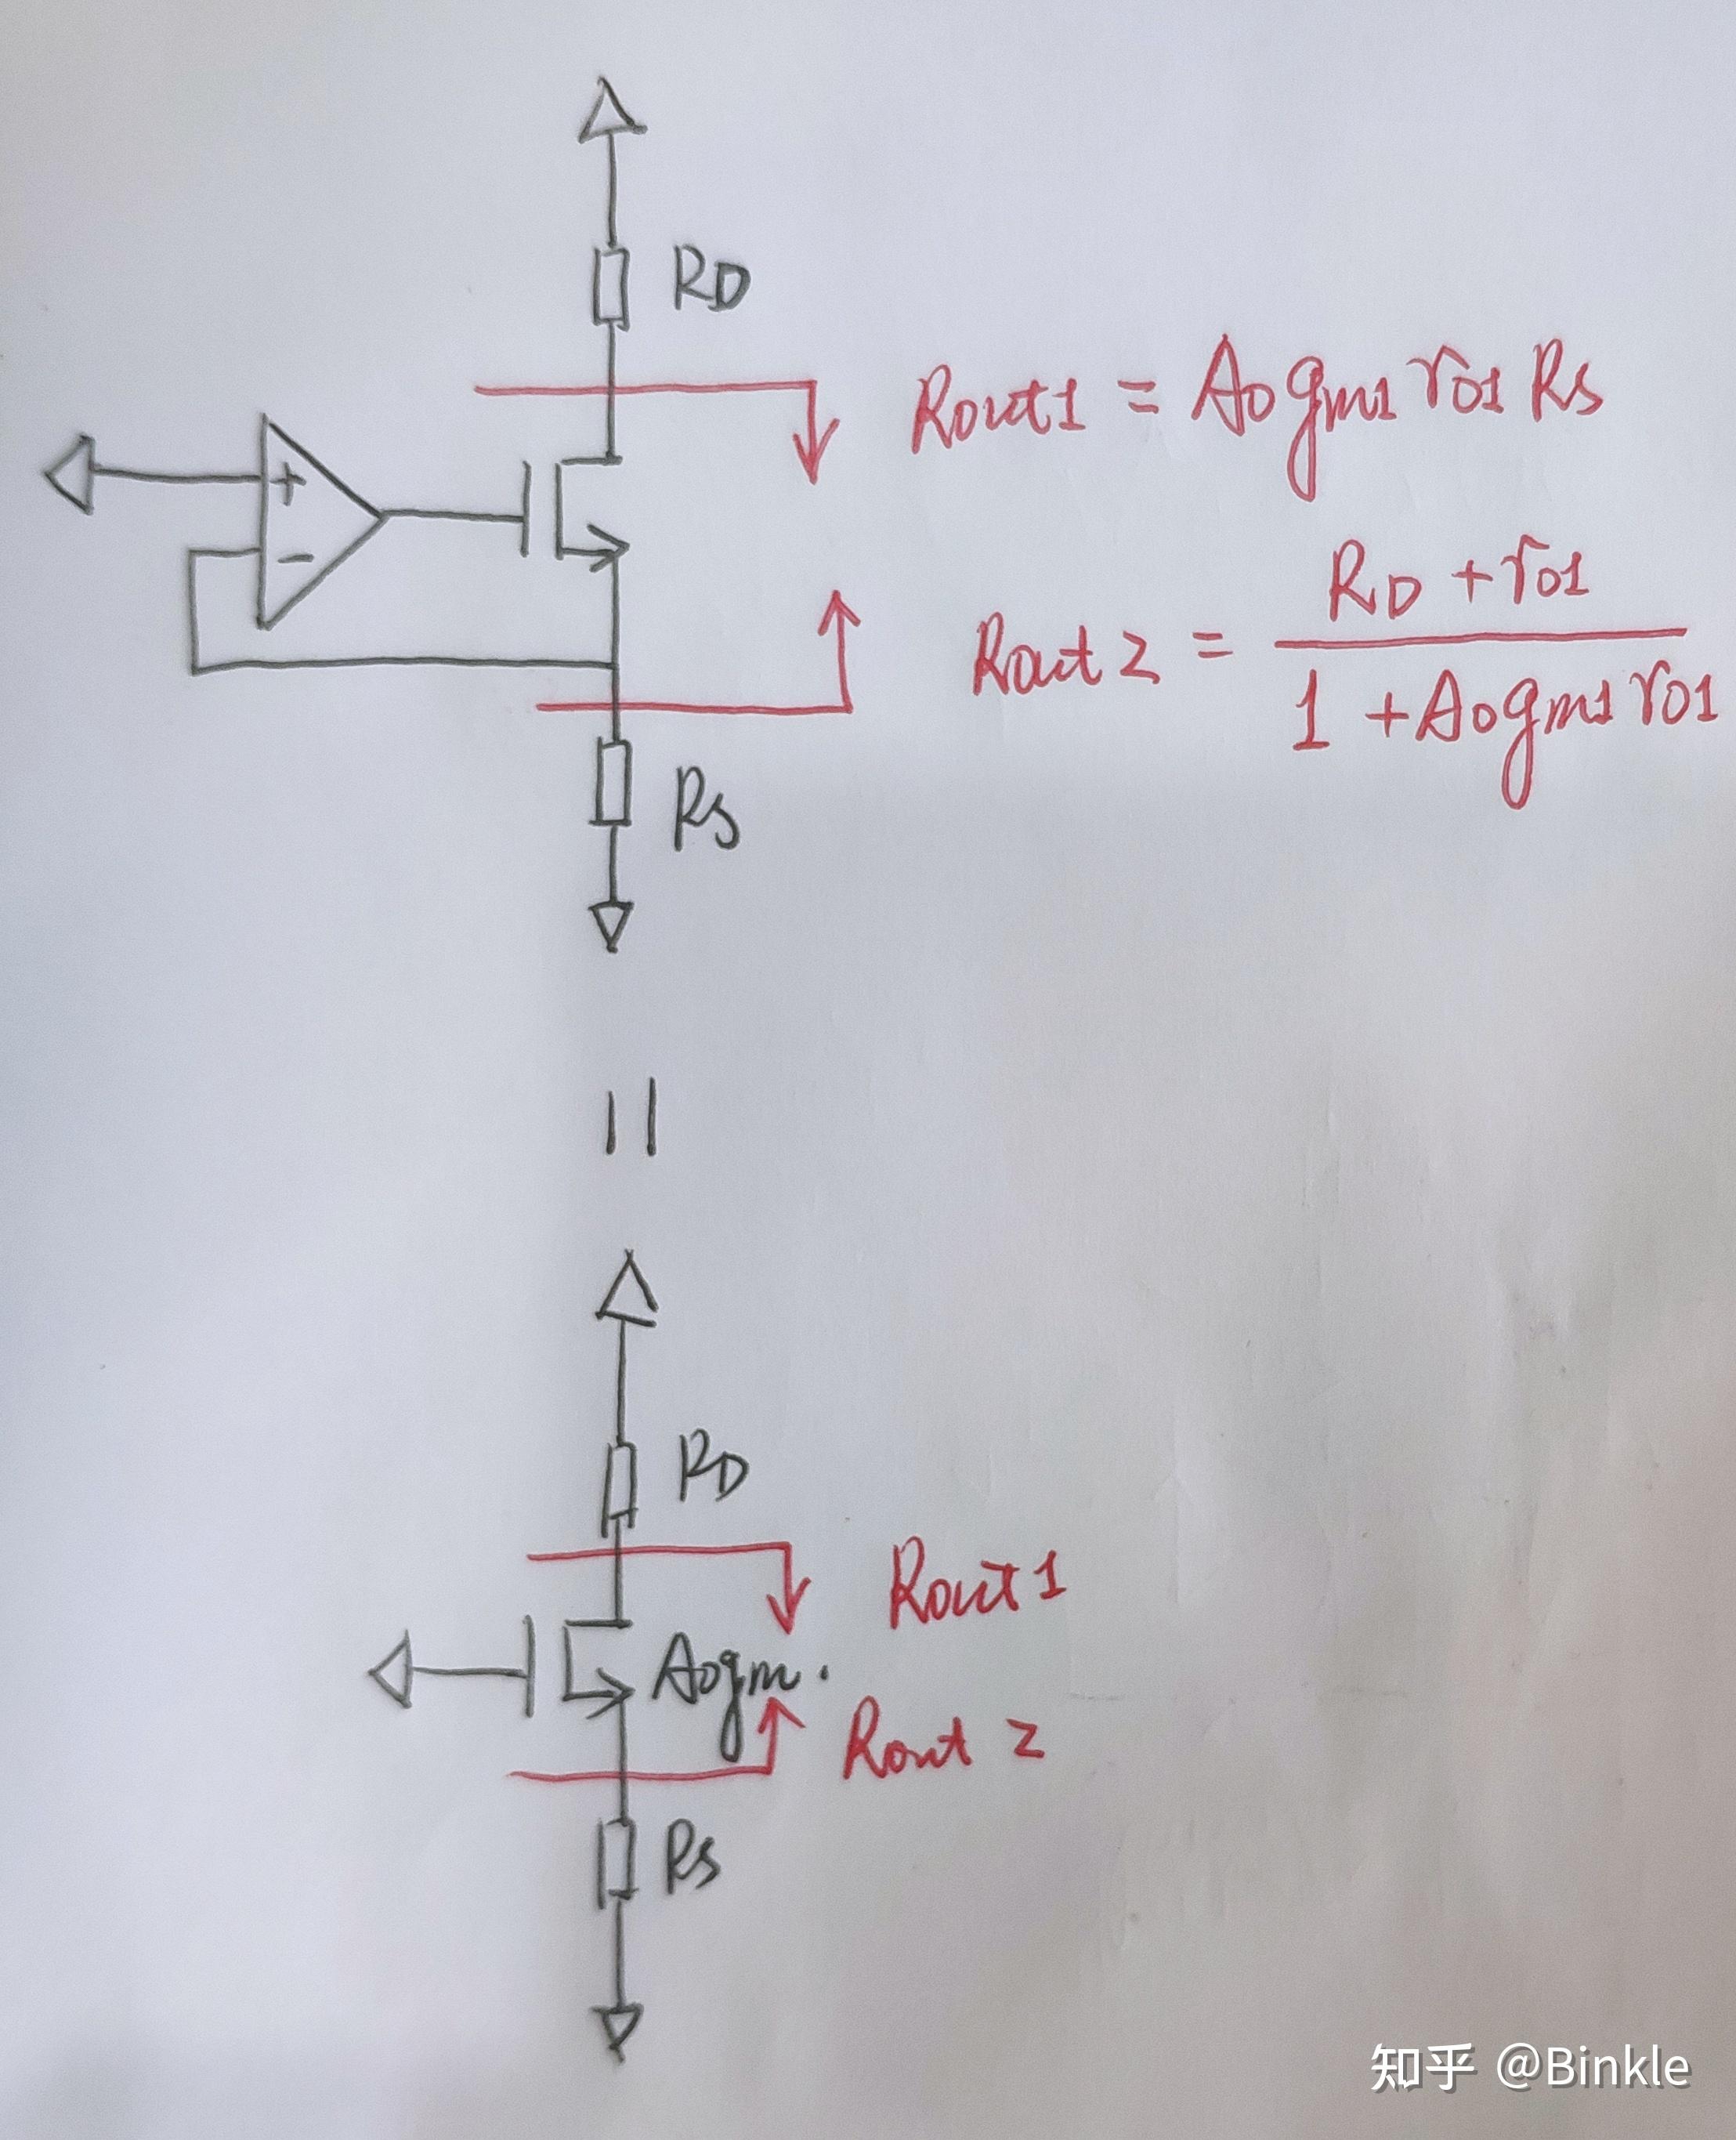 RD
Rout1 = A0gm1r01Rs
+
-
Rout2 = (RD + r01) / (1 + A0gm1r01)
Rs
=
RD
Rout1
A0gm.
Rout 2
Rs
知乎 @Binkle